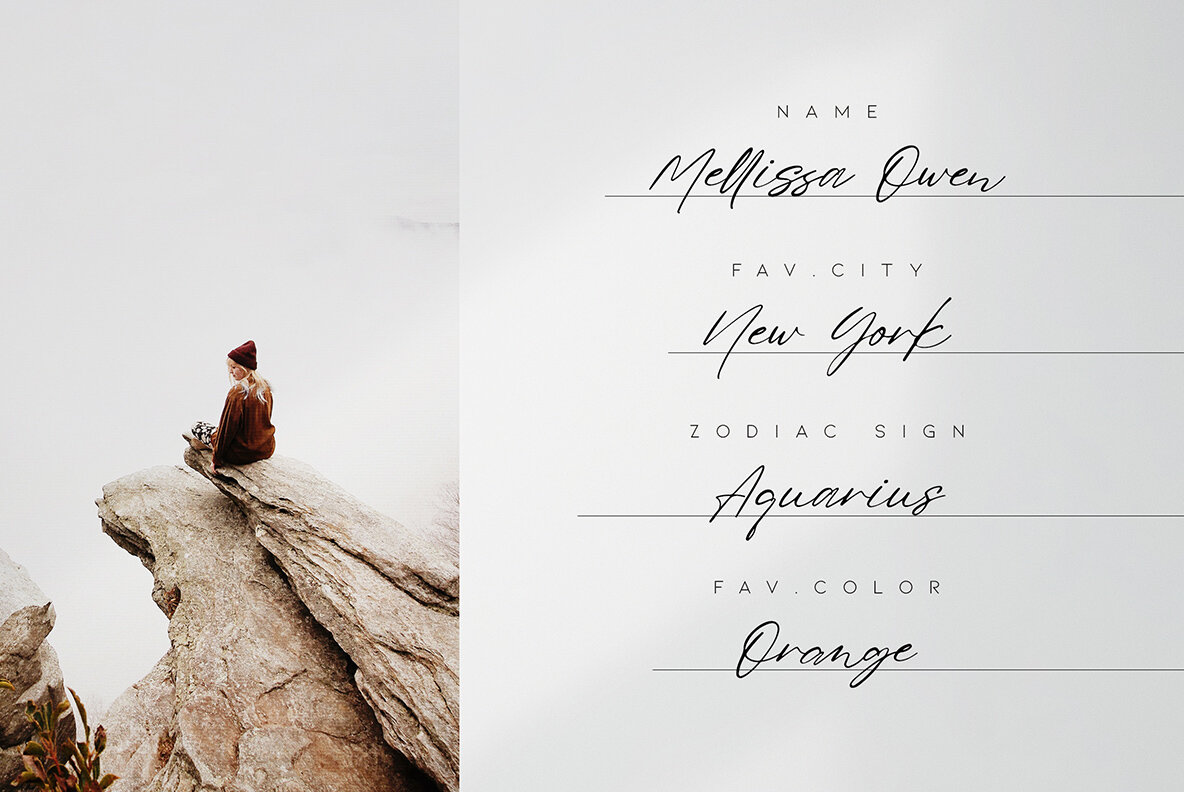 NAME
Mellissa Owen
FAV.CITY
New York
ZODIAC SIGN
Aquarius
FAV.COLOR
Orange